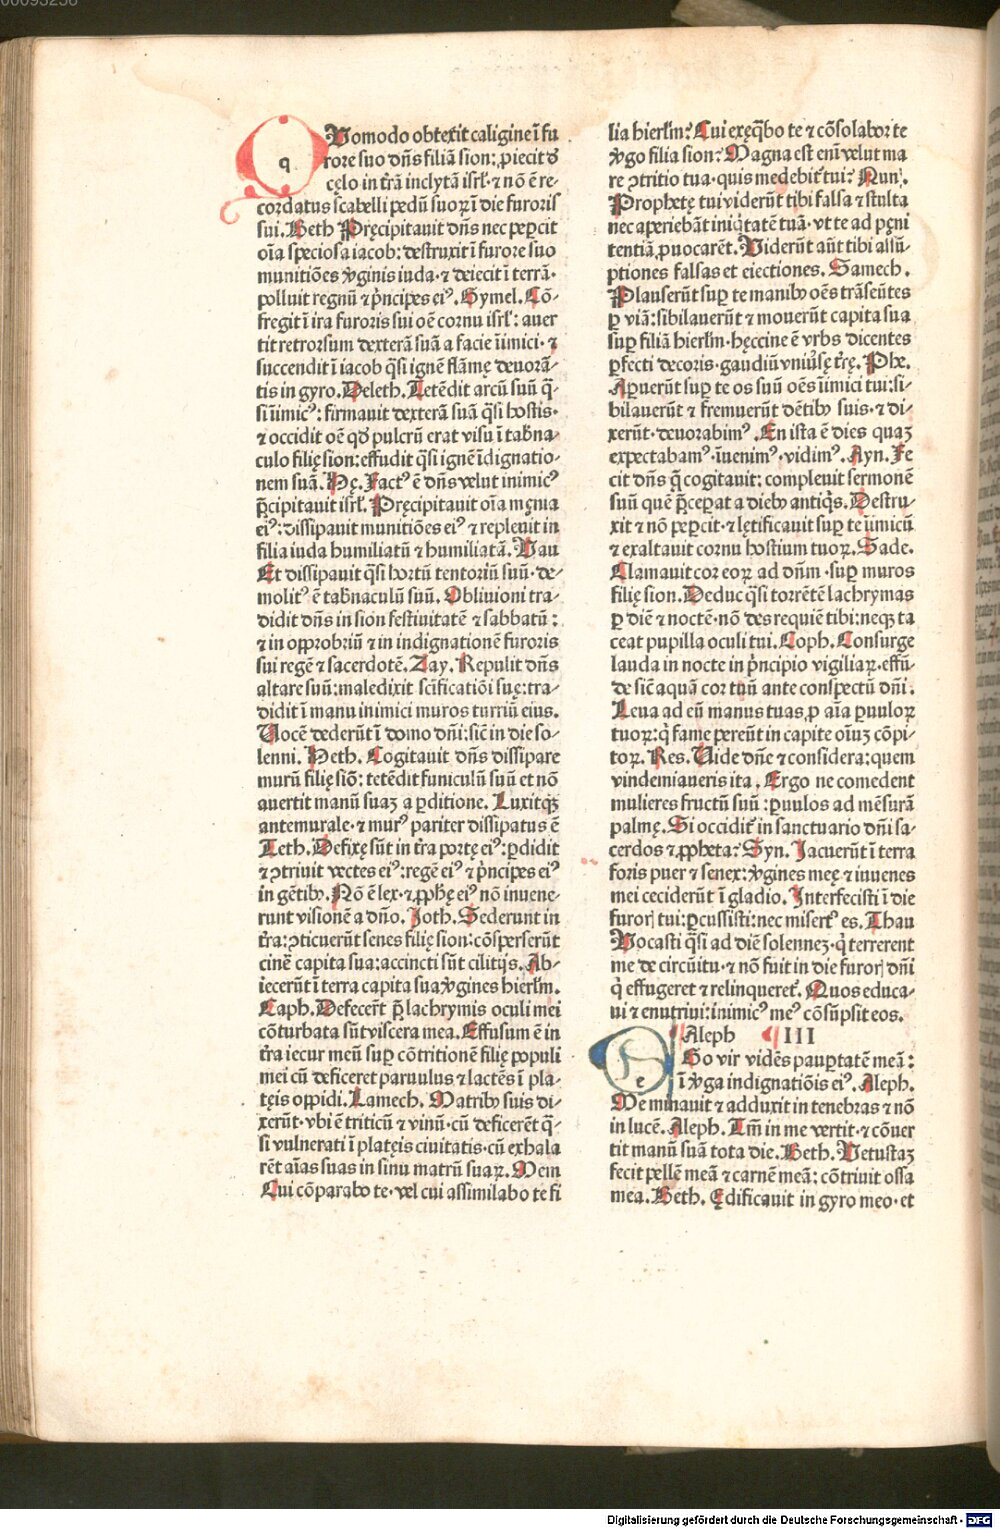 Quomodo obtexit caligine ĩ fu
rore suo dñs filiã sion: ꝓiecit ď
cęlo in t̃rã inclytã isrł· ⁊ nõ ẽ re-
cordatus scabelli pedũ suoꝝ ĩ die furoris
sui. Beth Pręcipitauit dñs nec peꝑcit
oĩa speciosa iacob: destruxit ĩ furore suo
munitiões ꝟginis iuda· ⁊ deiecit ĩ terrã·
polluit regnũ ⁊ p̃ncipes eiꝰ. Gymel. Cõ-
fregit ĩ ira furoris sui oẽ cornu isrł: auer
tit retrorsum dexterã suã a facie ĩimici· ⁊
succendit ĩ iacob q̃si ignẽ flãmę deuorã-
tis in gyro. Deleth. Tetẽdit arcũ suũ q̃-
si ĩimicꝰ: firmauit dexterã suã q̃si hostis·
⁊ occidit oẽ qđ pulcrũ erat visu ĩ tab̃na-
culo filię sion: effudit q̃si ignẽ ĩdignatio-
nem suã. Hę. Factꝰ ẽ dñs velut inimicꝰ
p̃cipitauit isrł. Pręcipitauit oĩa męnia
eiꝰ: dissipauit munitiões eiꝰ ⁊ repleuit in
filia iuda humiliatũ ⁊ humiliatã. Vau
Et dissipauit q̃si hortũ tentoriũ suũ· de-
molitꝰ ẽ tab̃naculũ suũ. Obliuioni tra-
didit dñs in sion festiuitatẽ ⁊ sabbatũ:
⁊ in opprobriũ ⁊ in indignationẽ furoris
sui regẽ ⁊ sacerdotẽ. Zay. Repulit dñs
altare suũ: maledixit sc̃ificatiõi suę: tra-
didit ĩ manu inimici muros turriũ eius.
Uocẽ dederũt ĩ domo dñi: sic̃ in die so-
lenni. Heth. Cogitauit dñs dissipare
murũ filię siõ: tetẽdit funiculũ suũ et nõ
auertit manũ suaꝫ a ꝑditione. Luxitqꝫ
antemurale· ⁊ murꝰ pariter dissipatus ẽ
Teth. Defixę sũt in t̃ra portę eiꝰ: ꝑdidit
⁊ ꝯtriuit vectes eiꝰ: regẽ eiꝰ ⁊ p̃ncipes eiꝰ
in gẽtibꝰ. Nõ ẽ lex· ⁊ ꝓph̃ę eiꝰ nõ inuene-
runt visionẽ a dño. Joth. Sederunt in
t̃ra: ꝯticuerũt senes filię sion: cõsperserũt
cinẽ capita sua: accincti sũt cilitijs. Ab-
iecerũt ĩ terra capita sua ꝟgines hierłm.
Caph. Defecerũt p̃ lachrymis oculi mei
cõturbata sũt viscera mea. Effusum ẽ in
t̃ra iecur meũ suꝑ cõtritionẽ filię populi
mei cũ deficeret paruulus ⁊ lactẽs ĩ pla-
tęis oppidi. Lamech. Matribꝰ suis di-
xerũt· vbi ẽ triticũ ⁊ vinũ· cũ deficerẽt q̃-
si vulnerati ĩ platęis ciuitatis· cũ exhala
rẽt aĩas suas in sinu matrũ suaꝝ. Mem
Cui cõparabo te· vel cui assimilabo te fi
lia hierłm? Cui exęq̃bo te ⁊ cõsolabor te
ꝟgo filia sion? Magna est enĩ velut ma
re ꝯtritio tua· quis medebit̃ tui? Nun.
Prophetę tui viderũt tibi falsa ⁊ stulta
nec aperiebãt iniq̃tatẽ tuã· vt te ad pęni
tentiã ꝓuocarẽt. Viderũt aũt tibi assũ-
ptiones falsas et eiectiones. Samech.
Plauserũt suꝑ te manibꝰ oẽs trãseũtes
ꝑ viã: sibilauerũt ⁊ mouerũt capita sua
suꝑ filiã hierłm· hęccine ẽ vrbs dicentes
ꝑfecti decoris· gaudiũ vniũsę t̃rę. Phe.
Aꝑuerũt suꝑ te os suũ oẽs ĩimici tui: si-
bilauerũt ⁊ fremuerũt dẽtibꝰ suis· ⁊ di-
xerũt· deuorabimꝰ. En ista ẽ dies quaꝫ
expectabamꝰ· ĩuenimꝰ· vidimꝰ. Ayn. Fe
cit dñs q̃ cogitauit: compleuit sermonẽ
suũ quẽ p̃ceꝑat a diebꝰ antiq̃s. Destru-
xit ⁊ nõ peꝑcit· ⁊ lętificauit suꝑ te ĩimicũ
⁊ exaltauit cornu hostium tuoꝝ. Sade.
Clamauit cor eoꝝ ad dñm· suꝑ muros
filię sion. Deduc q̃si torrẽtẽ lachrymas
ꝑ diẽ ⁊ noctẽ· nõ des requiẽ tibi: neqꝫ ta
ceat pupilla oculi tui. Coph. Consurge
lauda in nocte in p̃ncipio vigiliaꝝ· effũ-
de sic̃ aquã cor tuũ ante conspectũ dñi.
Leua ad eũ manus tuas ꝓ aĩa ꝑuuloꝝ
tuoꝝ: q̃ fame perierũt in capite oĩuꝫ cõpi-
toꝝ. Res. Uide dñe ⁊ considera: quem
vindemiaueris ita. Ergo ne comedent
mulieres fructũ suũ: ꝑuulos ad mẽsurã
palmę. Si occidit̃ in sanctuario dñi sa-
cerdos ⁊ ꝓpheta? Syn. Jacuerũt ĩ terra
foris puer ⁊ senex: ꝟgines meę ⁊ iuuenes
mei ceciderũt ĩ gladio. Interfecisti ĩ die
furorꝭ tui: ꝑcussisti: nec misertꝰ es. Thau
Vocasti q̃si ad diẽ solennẽꝫ· q̃ terrerent
me de circũitu· ⁊ nõ fuit in die furorꝭ dñi
q̃ effugeret ⁊ relinqueret̃. Quos educa-
ui ⁊ enutriui: inimicꝰ meꝰ cõsũpsit eos.
Aleph III
Ego vir vidẽs pauꝑtatẽ meã:
ĩ ꝟga indignatiõis eiꝰ. Aleph.
Me minauit ⁊ adduxit in tenebras ⁊ nõ
in lucẽ. Aleph. Tm̃ in me vertit· ⁊ cõuer
tit manũ suã tota die. Beth. Vetustaꝫ
fecit pellẽ meã ⁊ carnẽ meã: cõtriuit ossa
mea. Beth. Ędificauit in gyro meo· et
Digitalisierung gefördert durch die Deutsche Forschungsgemeinschaft - DFG